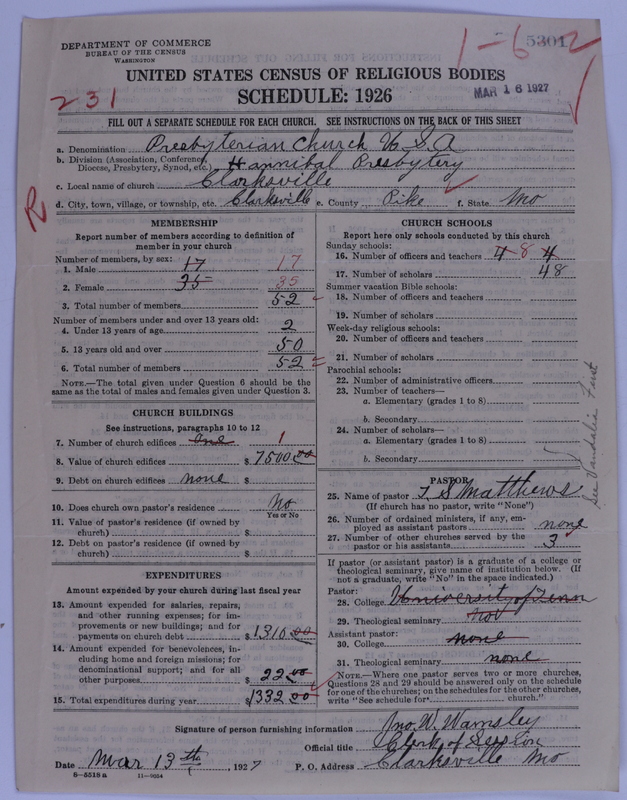 DEPARTMENT OF COMMERCE
BUREAU OF THE CENSUS
WASHINGTON
1-6
5301
MAR 16 1927
231
UNITED STATES CENSUS OF RELIGIOUS BODIES
SCHEDULE: 1926
FILL OUT A SEPARATE SCHEDULE FOR EACH CHURCH. SEE INSTRUCTIONS ON THE BACK OF THIS SHEET
a. Denomination Presbyterian Church U.S.A
b. Division (Association, Conference, Diocese, Presbytery, Synod, etc.) Hannibal Presbytery
c. Local name of church Clarksville
d. City, town, village, or township, etc. Clarksville e. County Pike f. State Mo
R
MEMBERSHIP
Report number of members according to definition of
member in your church
Number of members, by sex:
1. Male 17 17
2. Female 35 35
3. Total number of members 52
Number of members under and over 13 years old:
4. Under 13 years of age 2
5. 13 years old and over 50
6. Total number of members 52
NOTE.—The total given under Question 6 should be
same as the total of males and females given under Question 3.
CHURCH BUILDINGS
See instructions, paragraphs 10 to 12
7. Number of church edifices one 1
8. Value of church edifices $ 7500 00
9. Debt on church edifices none $
10. Does church own pastor's residence No
Yes or No
11. Value of pastor's residence (if owned by
church) $
12. Debt on pastor's residence (if owned by
church) $
EXPENDITURES
Amount expended by your church during last fiscal year
13. Amount expended for salaries, repairs,
and other running expenses; for im-
provements or new buildings; and for
payments on church debt $ 1310 00
14. Amount expended for benevolences, in-
cluding home and foreign missions; for
denominational support; and for all
other purposes $ 22 00
15. Total expenditures during year $ 1332 00
CHURCH SCHOOLS
Report here only schools conducted by this church
Sunday schools:
16. Number of officers and teachers 4 8 4
17. Number of scholars 48
Summer vacation Bible schools:
18. Number of officers and teachers
19. Number of scholars
Week-day religious schools:
20. Number of officers and teachers
21. Number of scholars
Parochial schools:
22. Number of administrative officers
23. Number of teachers—
a. Elementary (grades 1 to 8)
b. Secondary
24. Number of scholars—
a. Elementary (grades 1 to 8)
b. Secondary
See Vandalia First
PASTOR
25. Name of pastor T S Matthews
(If church has no pastor, write "None")
26. Number of ordained ministers, if any, em-
ployed as assistant pastors none
27. Number of other churches served by the
pastor or his assistants 3
If pastor (or assistant pastor) is a graduate of a college or
theological seminary, give name of institution below. (If
not a graduate, write "No" in the space indicated.)
Pastor:
28. College University of Tenn
29. Theological seminary
Assistant pastor:
30. College none
31. Theological seminary none
NOTE.—Where one pastor serves two or more churches,
Questions 28 and 29 should be answered only on the schedule
for one of the churches; on the schedules for the other churches,
write "See schedule for church."
Signature of person furnishing information Jno. W. Wamsley
Official title Clerk of Session
Date Mar 13th, 1927 P. O. Address Clarksville Mo
8—5518 a 11—9034